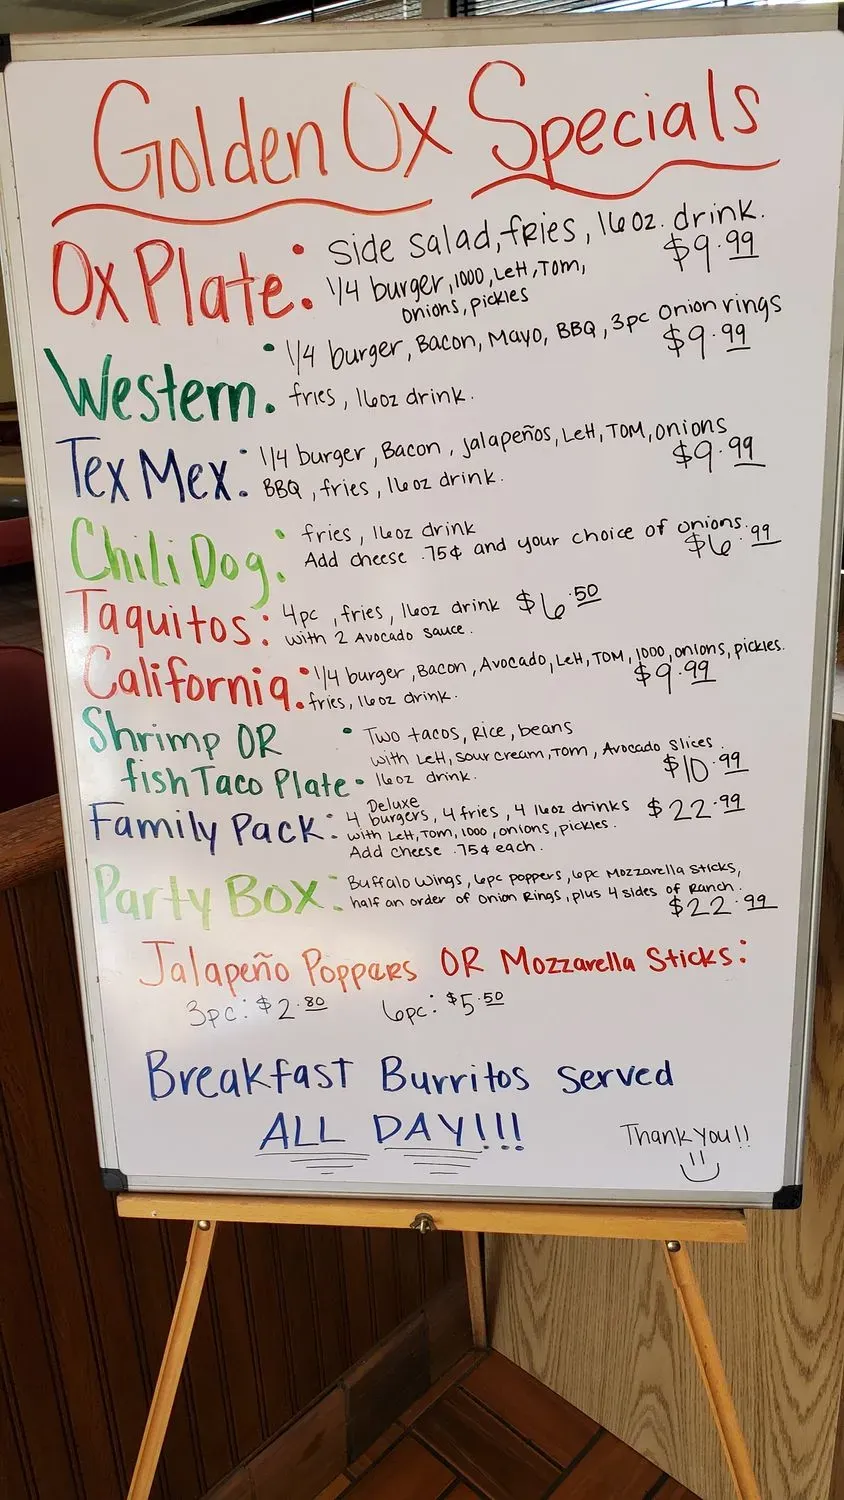 Golden Ox Specials
Ox Plate: • side salad, fries, 16oz. drink.
1/4 burger, 1000, Lett, Tom, $9.99
onions, pickles
Western. • 1/4 burger, Bacon, Mayo, BBQ, 3pc onion rings
fries, 16oz drink. $9.99
Tex Mex: • 1/4 burger, Bacon, jalapeños, Lett, TOM, onions
BBQ, fries, 16oz drink. $9.99
Chili Dog: • fries, 16oz drink
Add cheese .75¢ and your choice of onions. $6.99
Taquitos: 4pc, fries, 16oz drink $6.50
with 2 Avocado sauce.
California. • 1/4 burger, Bacon, Avocado, Lett, TOM, 1000, onions, pickles.
fries, 16oz drink. $9.99
Shrimp OR • Two tacos, Rice, beans
with Lett, sour cream, Tom, Avocado slices.
fish Taco Plate • 16oz drink. $10.99
Deluxe
Family Pack: 4 burgers, 4 fries, 4 16oz drinks $22.99
with Lett, Tom, 1000, onions, pickles.
Add cheese .75¢ each.
Party Box: Buffalo wings, 6pc poppers, 6pc Mozzarella sticks,
half an order of Onion Rings, plus 4 sides of Ranch.
$22.99
Jalapeño Poppers OR Mozzarella Sticks:
3pc: $2.80 6pc: $5.50
Breakfast Burritos served
ALL DAY!!!
Thank you!!